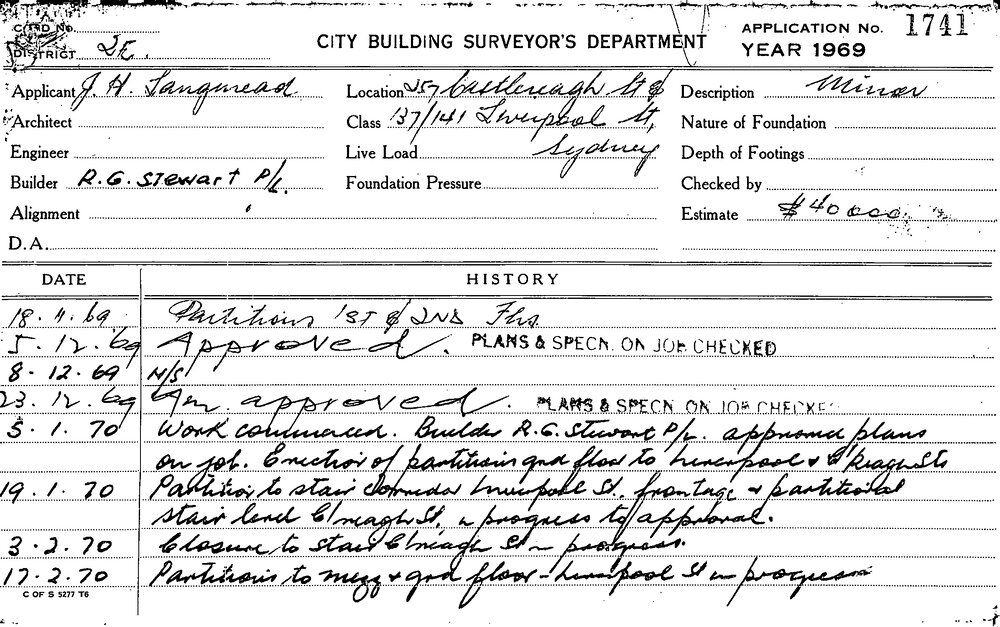 CARD No.
DISTRICT
CITY BUILDING SURVEYOR'S DEPARTMENT
APPLICATION No. 1741
YEAR 1969
Applicant J. H. Langmead
Location 257 Castlereagh St &
Description Minor
Architect
Class 137/141 Liverpool St,
Nature of Foundation
Engineer
Live Load Sydney
Depth of Footings
Builder R. G. Stewart P/L.
Foundation Pressure
Checked by
Alignment
Estimate $40 000
D.A.
DATE HISTORY
18. 11. 69 Partitions 1ST & 2ND Flrs.
5. 12. 69 Approved. PLANS & SPECN. ON JOB CHECKED
8. 12. 69 N/S
23. 12. 69 Am. approved. PLANS & SPECN. ON JOB CHECKE
5. 1. 70 Work commenced. Builder R. G. Stewart P/L. approved plans
on job. Erection of partitions grd floor to Liverpool & C'reagh Sts
19. 1. 70 Partition to stair corridor Liverpool St. frontage & partitional
stair level C'reagh St, in progress to approval.
3. 2. 70 Closure to stair C'reagh St in progress.
17. 2. 70 Partitions to mezz & grd floor - Liverpool St in progress
C OF S 5277 T6